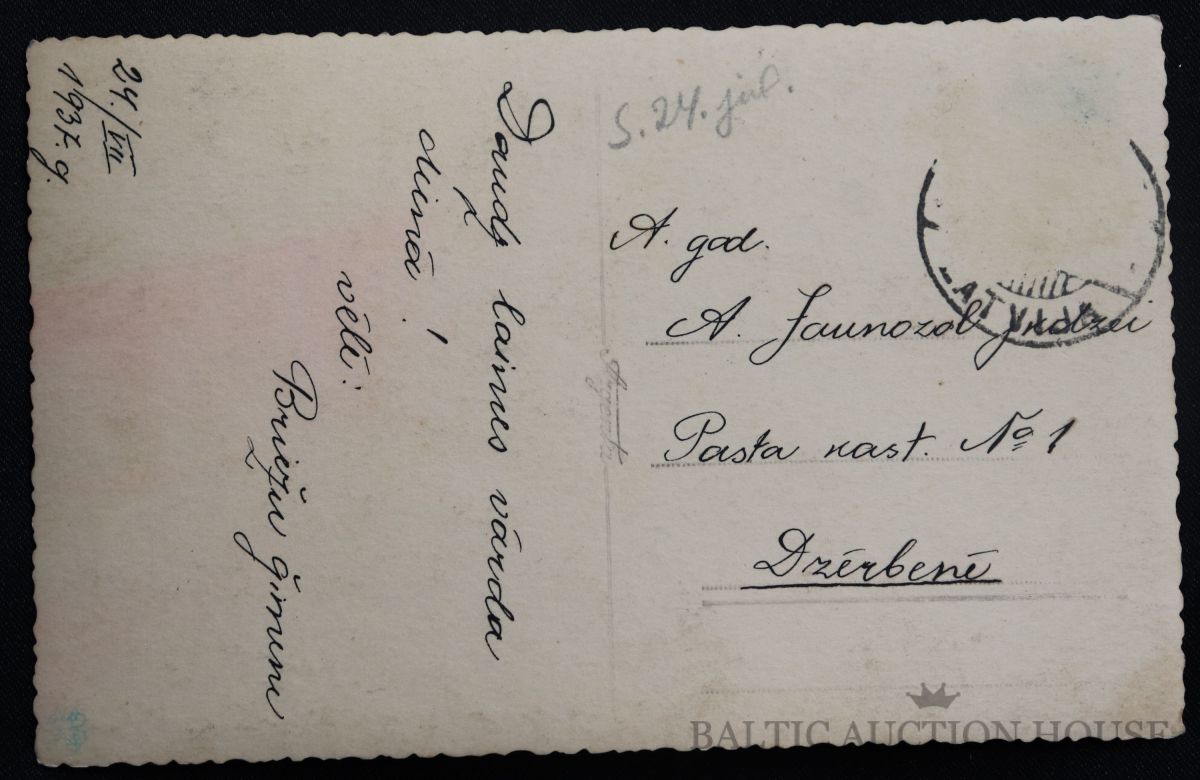 24./VII
1937. g.
Daudz laimes vārda
dienā!
vēlē:
Briežu ģimene
S. 24. jūl.
A. god.
A. Jaunozol jkdzei
Pasta kast. No 1
Dzērbenē
LATVIJA
BALTIC AUCTION HOUSE